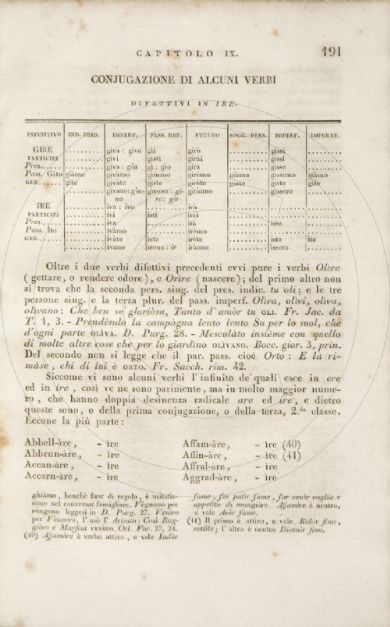 CAPITOLO IX. 191
CONJUGAZIONE DI ALCUNI VERBI
DIFETTIVI IN IRE.
INFINITIVO IND. PRES. IMPERF. PASS. DEF. FUTURO SOGG. PRES. IMPERF. IMPERAT.
GIRE giva : givo gíi girò gissi
PARTICIPJ givi gisti girài gissi
Pres. giva : gía gì ; gìo girà gisse
Pass. Gito giámo givámo gimmo girémo giámo gissimo giámo
GER. gite giváte giste giréte giáte giste gite
IRE iva : ivo irò
PARTICIPJ ivi isti irái
Pres. iva irà
Pass. Ito ivámo irémo
GER. iváte iste iréte iste ite
ívano iránno
Oltre i due verbi difettivi precedenti evvi pure i verbi Olìre
( gettare, o rendere odore ), e Orìre ( nascere ); del primo altro non
si trova che la seconda pers. sing. del pres. indic. tu oli ; e le tre
persone sing. e la terza plur. del pass. imperf. Oliva, olivi, oliva,
olivano : Che ben sè gloriòsa, Tanto d'amòr tu OLI. Fr. Jac. da
T. 4, 3. - Prendèndo la campàgna lento lento Su per lo suol, che
d'ogni parte OLIVA. D. Purg. 28. - Mescolàto insième con quello
di molte altre cose che per lo giardino OLIVANO. Bocc. gior. 3, prin.
Del secondo non si legge che il par. pass. cioè Orto : E la ri-
màse, chi di lui è ORTO. Fr. Sacch. rim. 42.
Siccome vi sono alcuni verbi l'infinito de' quali esce in ere
ed in ire, così ve ne sono parimente, ma in molto maggior nume-
ro, che hanno doppia desinenza radicale are ed ire, e dietro
queste sono, o della prima conjugazione, o della terza, 2.da classe.
Eccone la più parte :
Abbell-àre, - ìre Affam-àre, - ìre (40)
Abbrun-àre, - ìre Affin-àre, - ìre (41)
Accan-àre, - ìre Affral-àre, - ìre
Accarn-àre, - ìre Aggrad-àre, - ìre
ghiámo, benchè fuor di regola, è usitatis-
simo nel conversar famigliare. Vegnono per
vèngono leggesi in D. Purg. 27. Veniro
per Vènnero, l'usò l'Ariosto : Così Rug-
gièro e Marfisa veniro. Orl. Fur. 27, 24.
(40) Affamàre è verbo attivo, e vale Indùr
fame, far patir fame, far venir voglia e
appetito di mangiàre. Affamìre è neutro,
e vale Avér fame.
(41) Il primo è attivo, e vale Ridùr fino,
sottìle ; l'altro è neutro Divenìr fino.